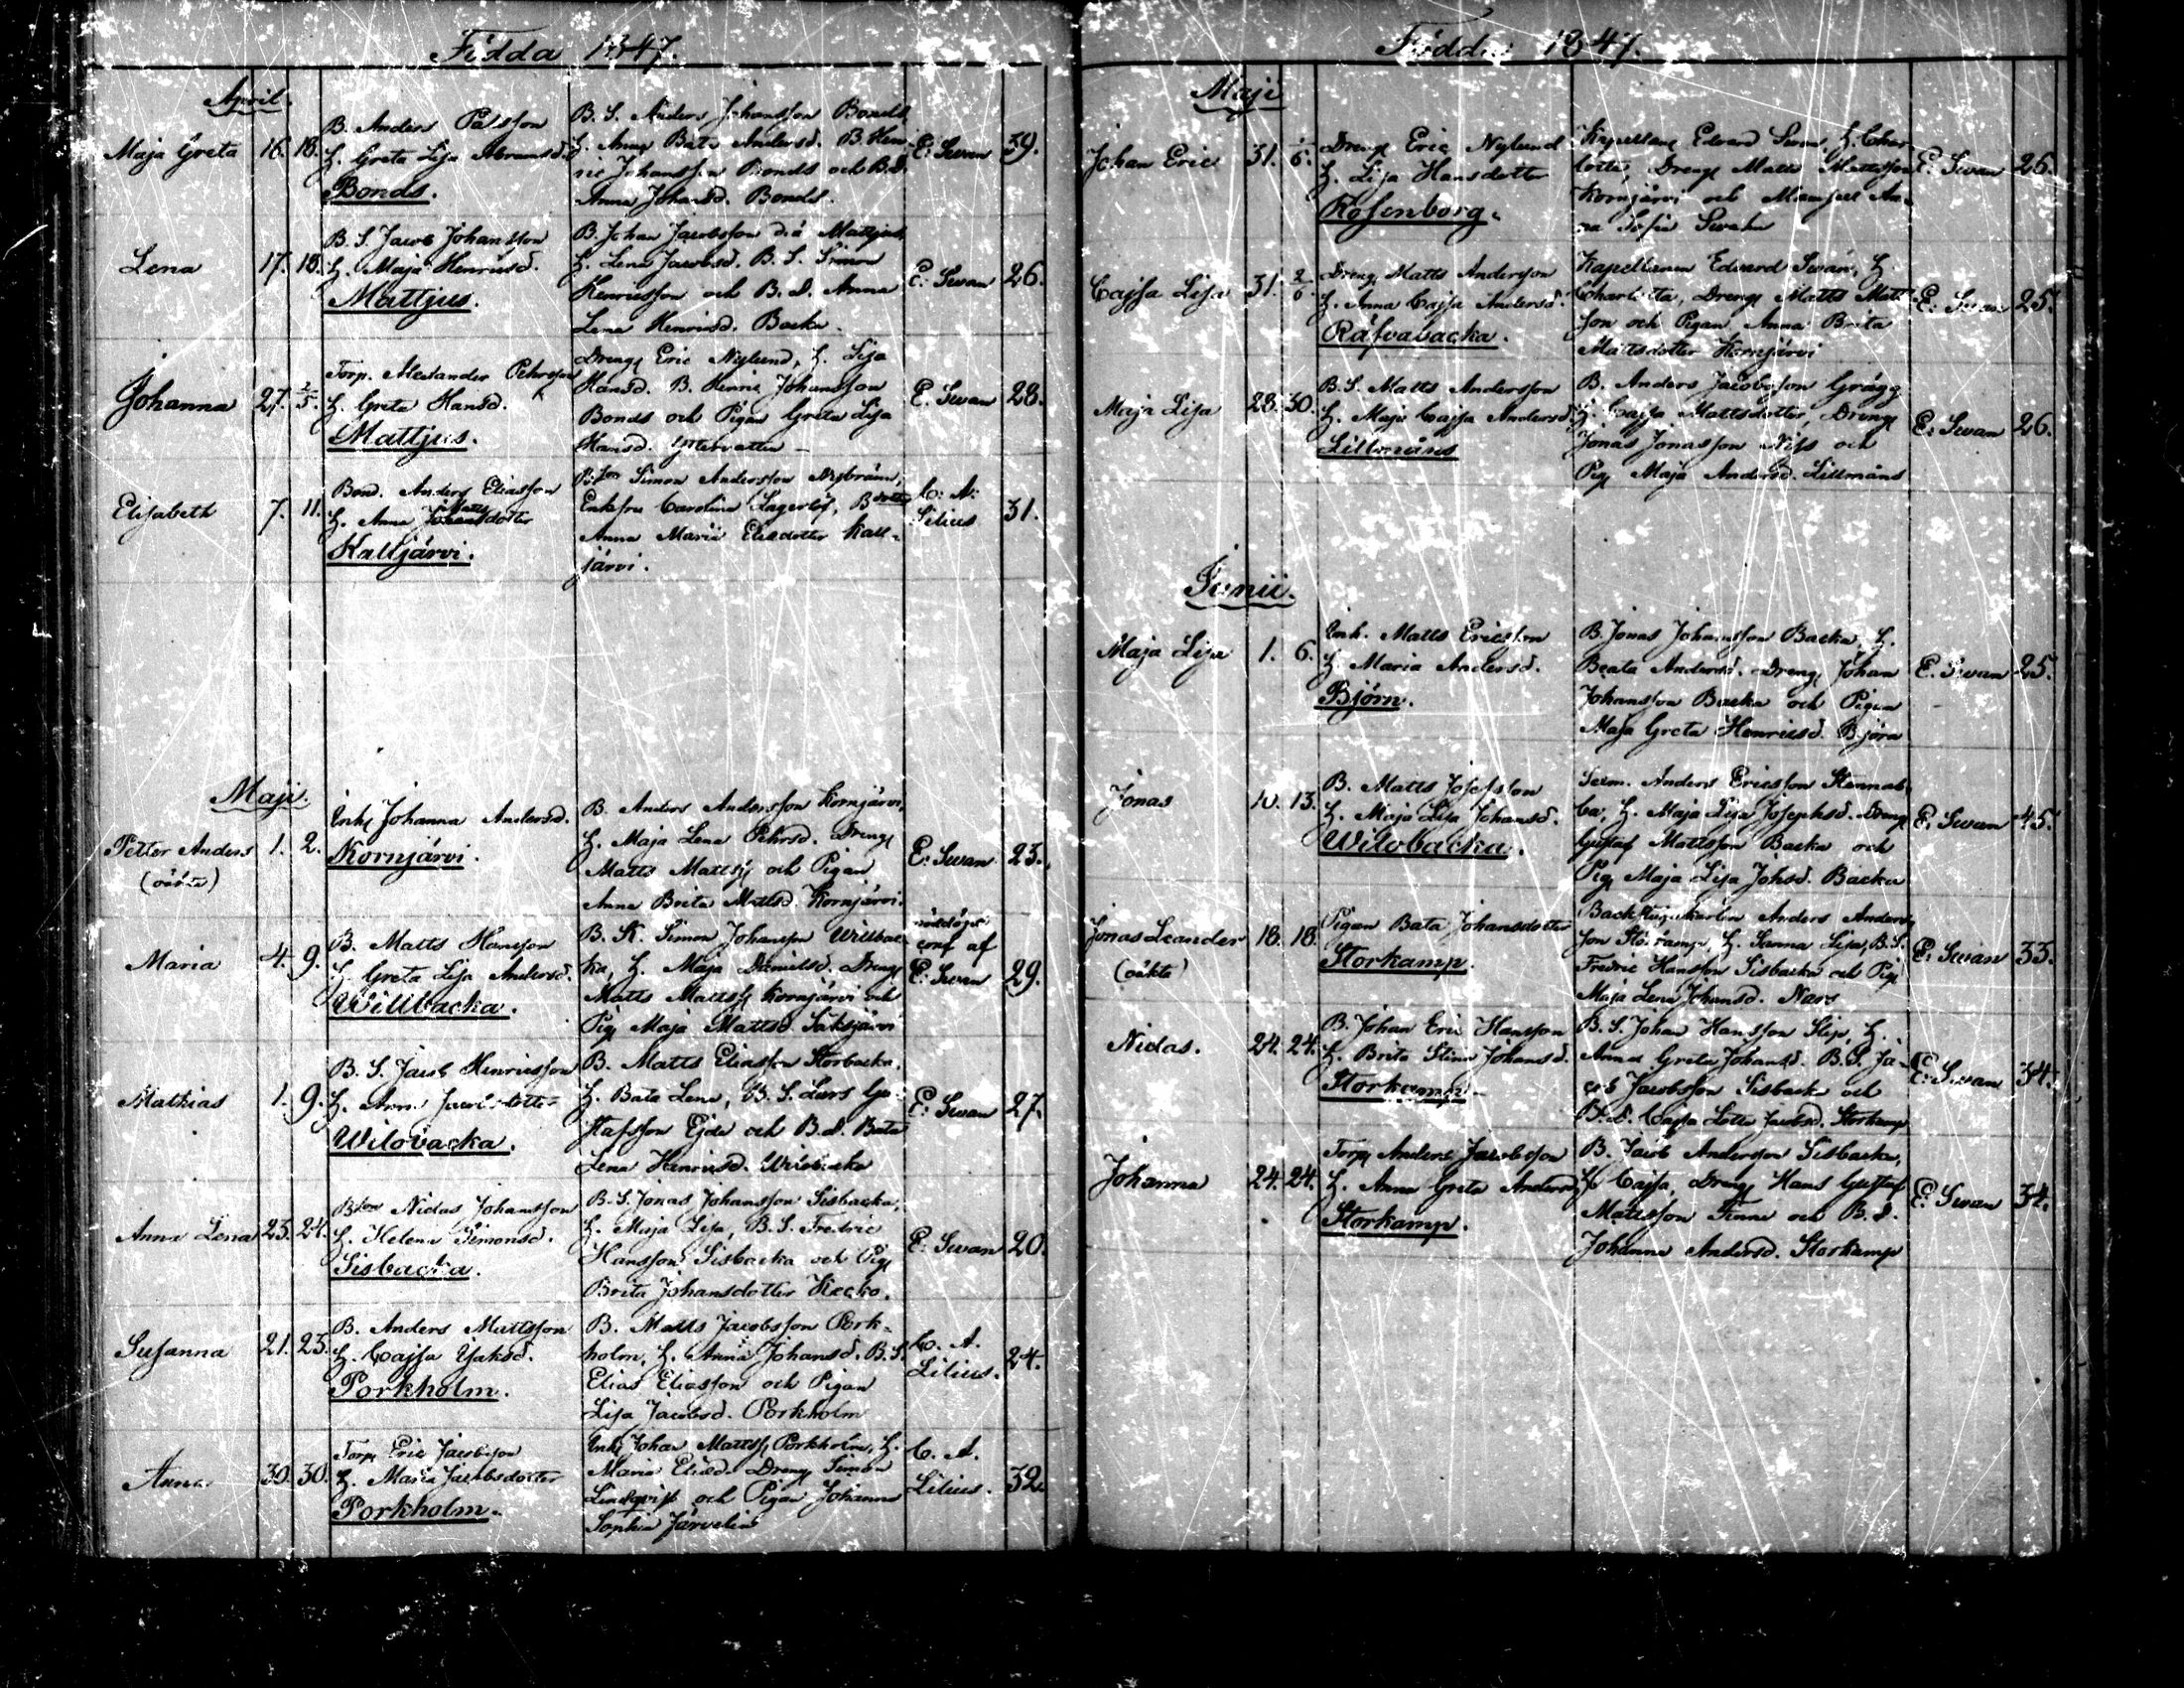 Födda 1847.
April.
Maja Greta 16. 18.
B. Anders Pålsson
H. Greta Lisa Abramsd.
Bonds.
B. S. Anders Johansson Bonds,
H. Anna Bata Andersd. B. Hen-
ric Johansson Bonds och B.d.
Anna Johansd. Bonds.
E. Swan 39.
Lena 17. 18.
B. S. Jacob Johansson
H. Maja Henricsd.
Mattjus.
B. Johan Jacobsson Mattjus,
H. Lena Jacobsd. B. S. Simon
Henricsson och B. d. Anna
Lena Henricsd. Backa.
E. Swan 26.
Johanna 27. 2/5.
Torp. Alexander Pehrsson
H. Greta Hansd.
Mattjus.
Dreng Eric Nylund, H. Lisa
Hansd. B. Henric Johansson
Bonds och Pigan Greta Lisa
Hansd. Yttervatten
E. Swan 28.
Elisabeth 7. 11.
Bond. Anders Eliasson
H. Anna Matts
Johansdotter
Kaltjärvi.
Simon Andersson Nybränn,
Enkefru Carolina Lagerlöf, Bdotter
Anna Maria Eliædotter Kalt-
järvi.
C. A.
Lilius 31.
Maji.
Petter Anders 1. 2.
(oäkta)
Enk. Johanna Andersd.
Kornjärvi.
B. Anders Andersson Kornjärvi,
H. Maja Lena Pehrsd. Dreng
Matts Mattss. och Pigan
Anna Brita Mattsd. Kornjärvi.
E. Swan 23.
Maria 4. 9.
B. Matts Hansson
H. Greta Lisa Andersd.
Willbacka.
B. K. Simon Johansson Willbac-
ka, H. Maja Danielsd. Dreng
Matts Mattss. Kornjärvi och
Pig. Maja Mattsd. Säksjärvi
nöddöpt
conf af
E. Swan 29.
Mathias 1. 9.
B. S. Jacob Henricsson
H. Anna Jacobsdotter
Wilobacka.
B. Matts Eliasson Storbacka,
H. Bata Lena, B. S. Lars Gu-
stafsson Ejde och B.d. Bata
Lena Henricsd. Wilobacka
E. Swan 27.
Anna Lena 23. 24.
Bson Nidas Johansson
H. Helena Simonsd.
Sisbacka.
B. S. Jonas Johansson Sisbacka,
H. Maja Lisa, B. S. Fredric
Hansson Sisbacka och Pig.
Brita Johansdotter Kecko.
E. Swan 20.
Susanna 21. 23.
B. Anders Mattsson
H. Cajsa Isaksd.
Porkholm.
B. Matts Jacobsson Pork-
holm, H. Anna Johansd. B. S.
Elias Eliasson och Pigan
Lisa Jacobsd. Porkholm
C. A.
Lilius. 24.
Anna 30. 30.
Torp. Eric Jacobsson
H. Maria Jacobsdotter
Porkholm.
Enk. Johan Mattss. Porkholm, H.
Maria Eliæd. Dreng Simon
Lindqvist och Pigan Johanna
Sophia Järvelin
C. A.
Lilius. 32.
Födda 1847.
Maji
Johan Eric 31. 1/6.
Dreng Eric Nylund
H. Lisa Hansdotter
Rosenborg.
Kapellans Edvard Swan, H. Char-
lotta, Dreng Matts Mattsson
Kornjärvi och Mamsell An-
na Sofia Swahn
E. Swan 26.
Cajsa Lisa 31. 2/6
Dreng Matts Andersson
H. Anna Cajsa Andersd.
Räfvabacka.
Kapellanen Edvard Swan, H.
Charlotta, Dreng Matts Matt-
son och Pigan Anna Brita
Mattsdotter Kornjärvi
E. Swan 25.
Maja Lisa 28. 30.
B. S. Matts Andersson
H. Maja Cajsa Andersd.
Lillmåns
B. Anders Jacobsson Grägg
H. Cajsa Mattsdotter, Dreng
Jonas Jonasson Nifs och
Pig. Maja Andersd. Lillmåns
E. Swan 26.
Junii.
Maja Lisa 1. 6.
Inh. Matts Ericsson
H. Maria Andersd.
Björn.
B. Jonas Johansson Backa, H.
Beata Andersd. Dreng Johan
Johansson Backa och Pigan
Maja Greta Henricsd. Björn
E. Swan 25.
Jonas 10. 13.
B. Matts Josefsson
H. Maja Lisa Johansd.
Wilobacka.
Sexm. Anders Ericsson Stennab-
ba, H. Maja Lisa Josephsd. Dreng
Gustaf Mattsson Backa och
Pig. Maja Lisa Johsd. Backa
E. Swan 45.
Jonas Leander 18. 18.
(oäkta)
Pigan Bata Johansdotter
Storkamp.
Backstugukarlen Anders Anders-
son Storkamp, H. Sanna Lisa, B. S.
Fredric Hansson Sisbacka och Pig.
Maja Lena Johansd. Nars
E. Swan 33.
Nidas. 24. 24.
B. Johan Eric Hansson
H. Brita Stina Johansd.
Storkamp.
B. S. Johan Hansson Slip, H.
Anna Greta Johansd. B. S. Ja-
cob Jacobsson Sisbacka och
B. d. Cajsa Lotta Jacobsd. Storkamp
E. Swan 34.
Johanna 24. 24.
Torp. Anders Jacobsson
H. Anna Greta Andersd.
Storkamp.
B. Jacob Andersson Sisbacka,
H. Cajsa, Dreng Hans Gustaf
Mattsson Finne och B. d.
Johanna Andersd. Storkamp
E. Swan 34.